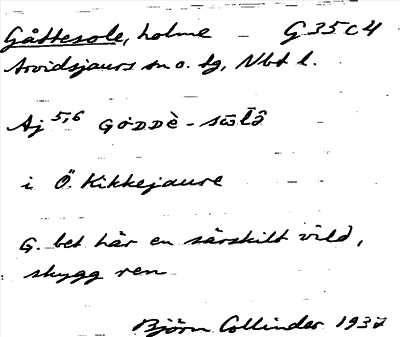 Gåttesole, holme - G 35 c 4
Arvidsjaurs sn o. tg, Nbt l.
Aj 5,6 GÖDDÈ - sω̄lō̭
i Ö. Kikkejaure
G. bet här en särskilt vild,
skygg ren
Björn Collinder 1937